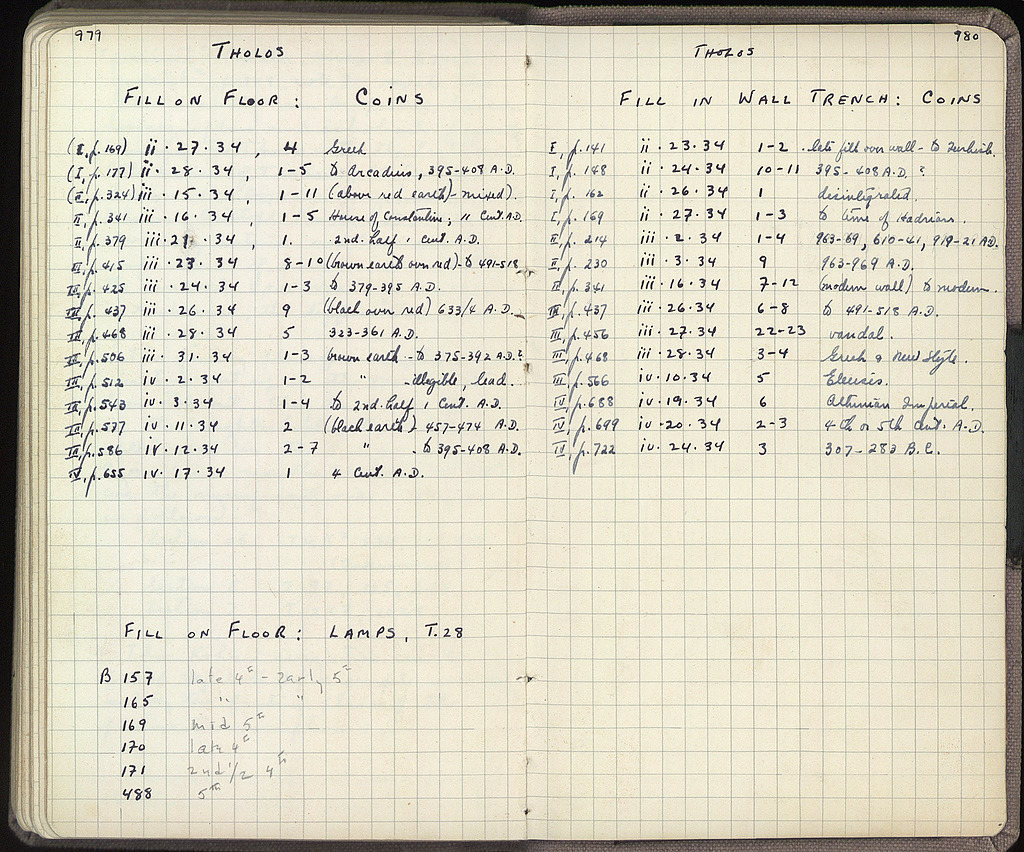 979
THOLOS
FILL ON FLOOR: COINS
(I, p. 169) ii · 27 · 34, 4 Greek
(I, p. 177) ii · 28 · 34, 1-5 to Arcadius, 395-408 A.D.
(II, p. 324) iii · 15 · 34, 1-11 (above red earth) - mixed).
II, p. 341 iii · 16 · 34, 1-5 House of Constantine; " Cent. A.D.
II, p. 379 iii · 21 · 34, 1. 2nd. half 1 cent. A.D.
III, p. 415 iii · 23 · 34 8-10 (brown earth over red) - to 491-518
III, p. 425 iii · 24 · 34 1-3 to 379-395 A.D.
III, p. 437 iii · 26 · 34 9 (black over red) 633/4 A.D.
III, p. 468 iii · 28 · 34 5 323-361 A.D.
III, p. 506 iii · 31 · 34 1-3 brown earth - to 375-392 A.D.?
III, p. 512 iv · 2 · 34 1-2 " - illegible, lead.
III, p. 543 iv · 3 · 34 1-4 to 2nd. half 1 Cent. A.D.
III, p. 577 iv · 11 · 34 2 (black earth) 457-474 A.D.
III, p. 586 iv · 12 · 34 2-7 " . to 395-408 A.D.
IV, p. 655 iv · 17 · 34 1 4 Cent. A.D.
FILL ON FLOOR: LAMPS, T.28
B 157 late 4th - early 5th
165 " "
169 mid 5th
170 late 4th
171 2nd 1/2 4th
488 5th
980
THOLOS
FILL IN WALL TRENCH: COINS
I, p. 141 ii · 23 · 34 1-2 . late fill over wall - to Turkish.
I, p. 148 ii · 24 · 34 10-11 395-408 A.D. ?
I, p. 162 ii · 26 · 34 1 disintegrated.
I, p. 169 ii · 27 · 34 1-3 to time of Hadrian.
II, p. 214 iii · 2 · 34 1-4 963-69, 610-41, 919-21 A.D.
II, p. 230 iii · 3 · 34 9 963-969 A.D.
II, p. 341 iii · 16 · 34 7-12 (modern wall) to modern.
III, p. 437 iii · 26 · 34 6-8 to 491-518 A.D.
III, p. 456 iii · 27 · 34 22-23 vandal.
III, p. 468 iii · 28 · 34 3-4 Greek & New Style.
III, p. 566 iv · 10 · 34 5 Eleusis.
IV, p. 688 iv · 19 · 34 6 Athenian Imperial.
IV, p. 699 iv · 20 · 34 2-3 4th or 5th Cent. A.D.
IV, p. 722 iv · 24 · 34 3 307-283 B.C.